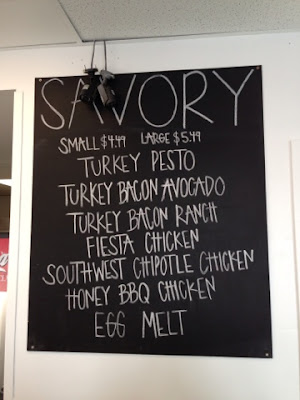 SAVORY
SMALL $4.99 LARGE $5.99
TURKEY PESTO
TURKEY BACON AVOCADO
TURKEY BACON RANCH
FIESTA CHICKEN
SOUTHWEST CHIPOTLE CHICKEN
HONEY BBQ CHICKEN
EGG MELT